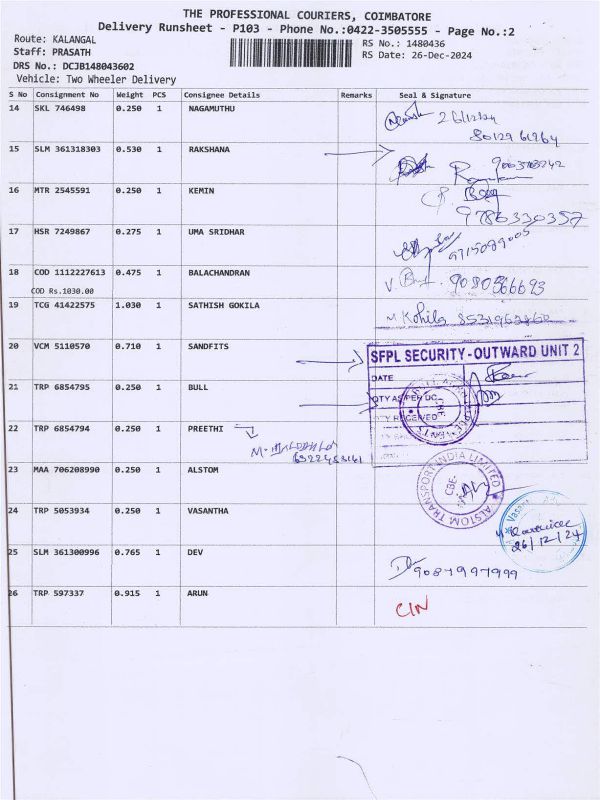 THE PROFESSIONAL COURIERS, COIMBATORE
Delivery Runsheet - P103 - Phone No.:0422-3505555 - Page No.:2
Route: KALANGAL
RS No.: 1480436
Staff: PRASATH
RS Date: 26-Dec-2024
DRS No.: DCJB148043602
Vehicle: Two Wheeler Delivery
S No Consignment No Weight PCS Consignee Details Remarks Seal & Signature
14 SKL 746498 0.250 1 NAGAMUTHU
26/12/24
8012961964
15 SLM 361318303 0.530 1 RAKSHANA
16 MTR 2545591 0.250 1 KEMIN
9786330357
17 HSR 7249867 0.275 1 UMA SRIDHAR
9715089005
18 COD 1112227613 0.475 1 BALACHANDRAN
COD Rs.1030.00
9080566693
19 TCG 41422575 1.030 1 SATHISH GOKILA
M Kohila
20 VCM 5110570 0.710 1 SANDFITS
SFPL SECURITY-OUTWARD UNIT 2
DATE
21 TRP 6854795 0.250 1 BULL
QTY AS PER DC
QTY RECEIVED
22 TRP 6854794 0.250 1 PREETHI
23 MAA 706208990 0.250 1 ALSTOM
ALSTOM TRANSPORT INDIA LIMITED
CBE
24 TRP 5053934 0.250 1 VASANTHA
26/12/24
25 SLM 361300996 0.765 1 DEV
9087997999
26 TRP 597337 0.915 1 ARUN
CIN